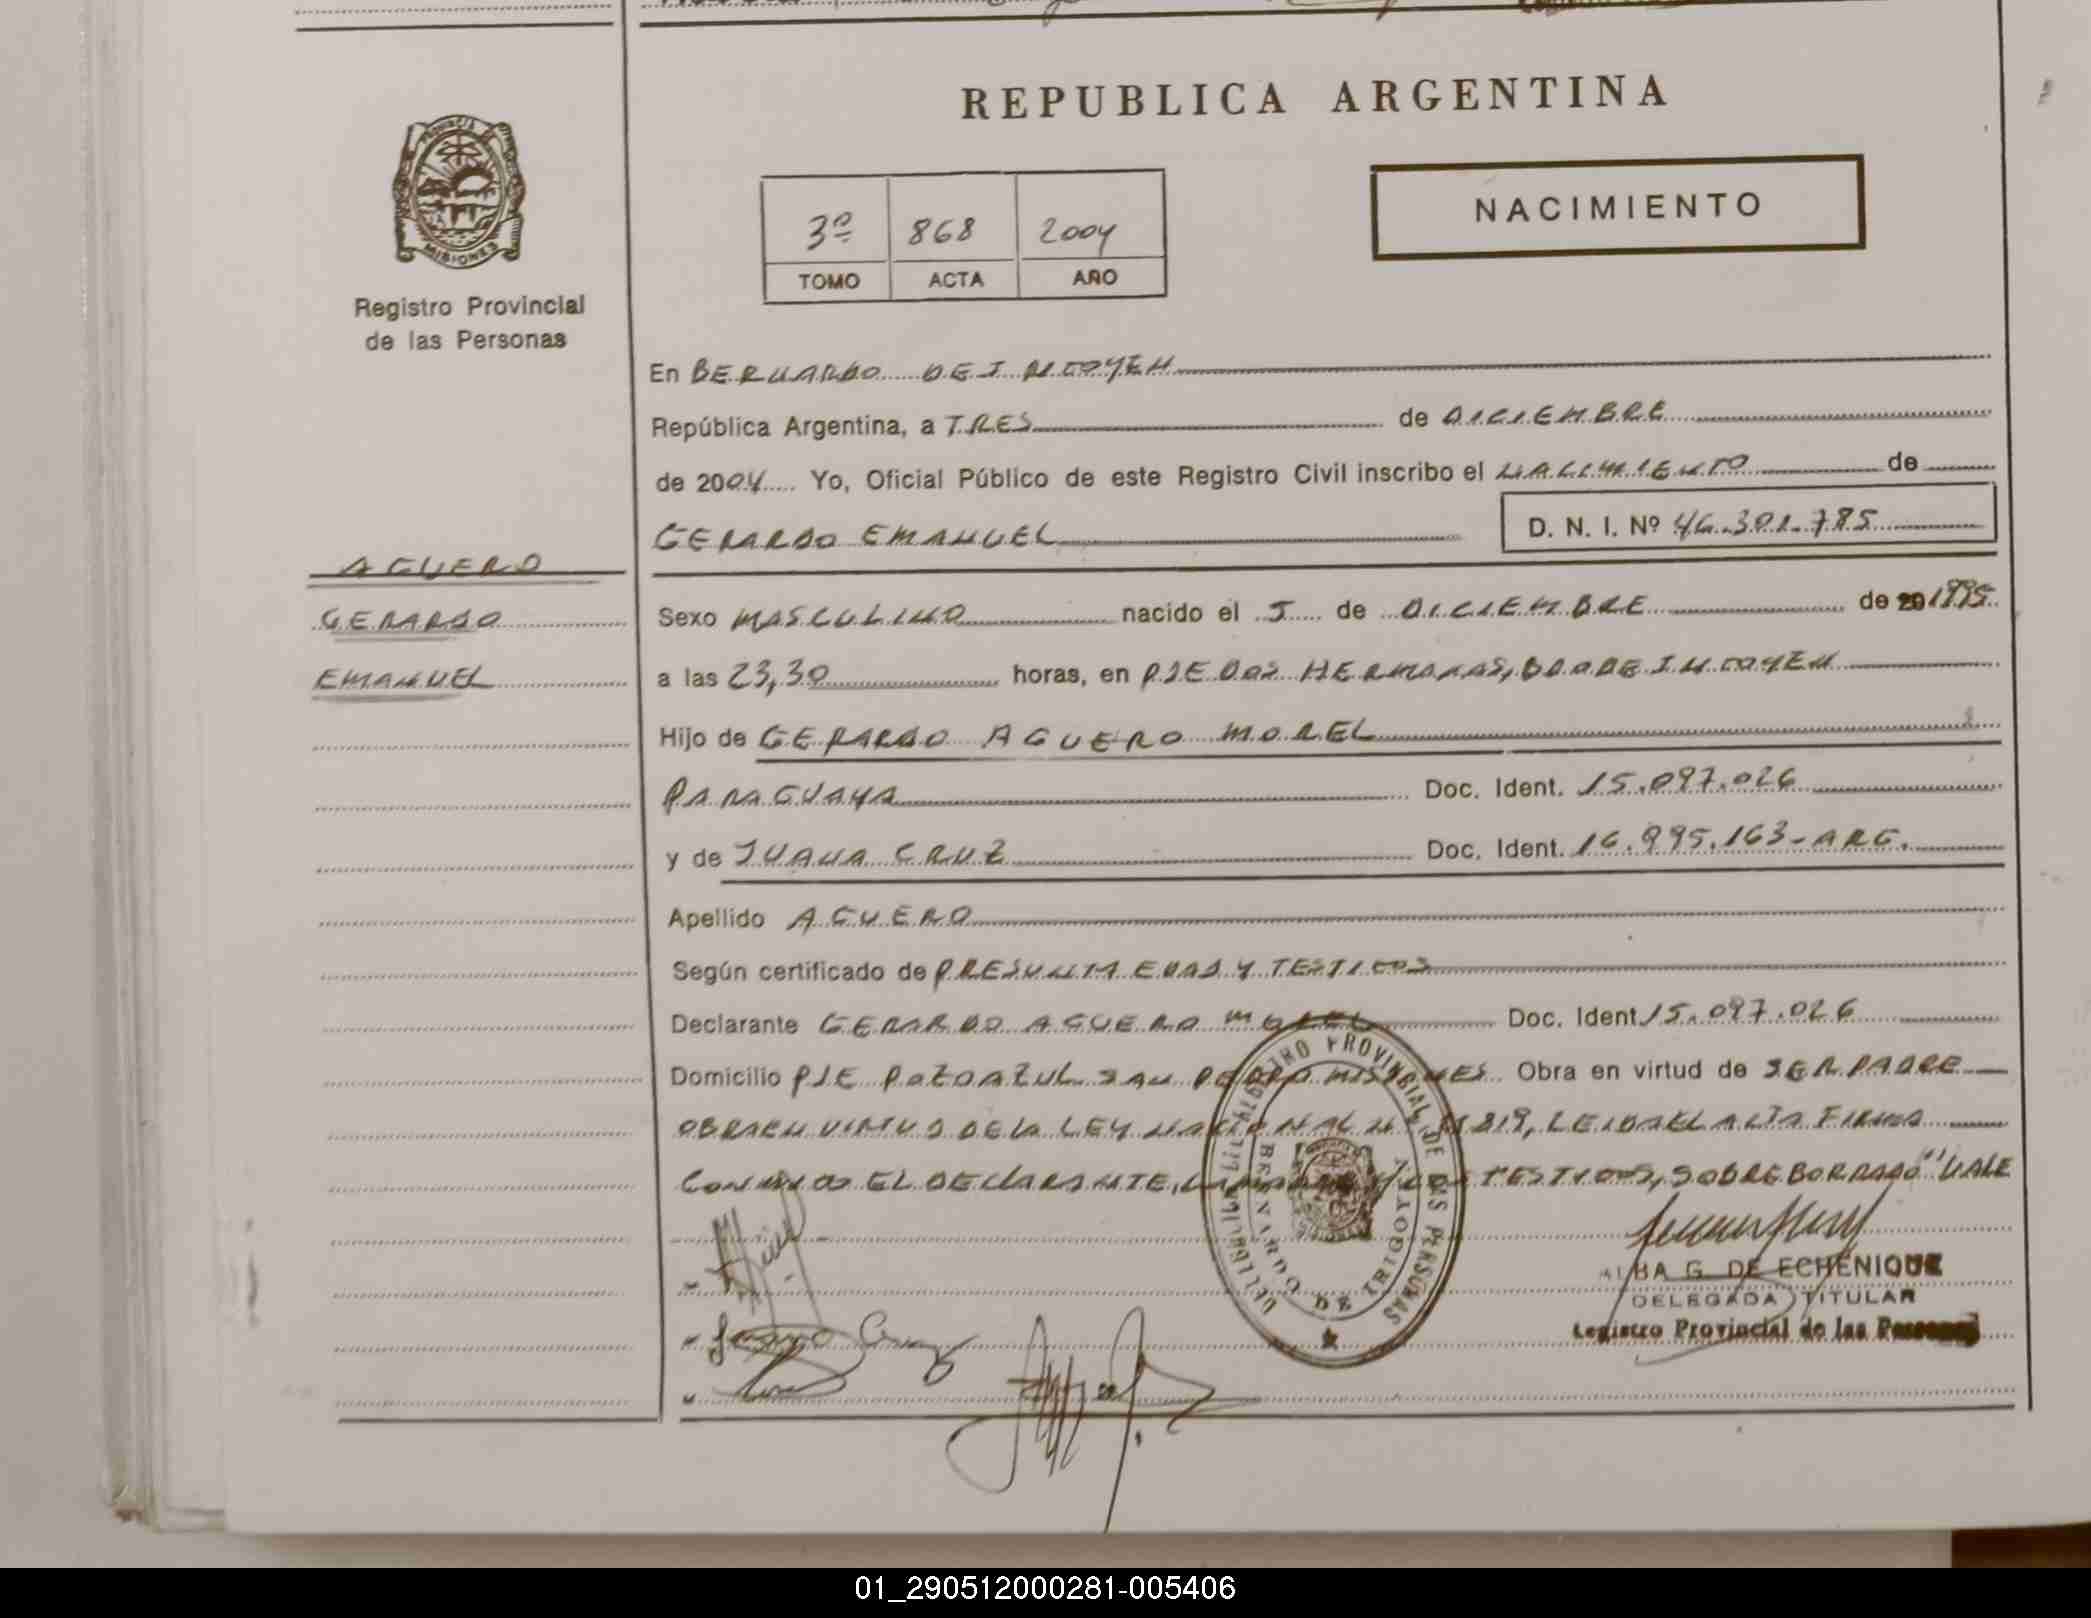 REPUBLICA ARGENTINA
PROVINCIA
MISIONES
Registro Provincial
de las Personas
3º 868 2004
TOMO ACTA AÑO
NACIMIENTO
En BERNARDO DE IRIGOYEN
República Argentina, a TRES de DICIEMBRE
de 2004 Yo, Oficial Público de este Registro Civil inscribo el NACIMIENTO de
GERARDO EMANUEL D. N. I. Nº 46.301.785
AGUERO
GERARDO
EMANUEL
Sexo MASCULINO nacido el 5 de DICIEMBRE de 20 1995
a las 23,30 horas, en PJE DOS HERMANAS, BDO DE IRIGOYEN
Hijo de GERARDO AGUERO MOREL
PARAGUAYA Doc. Ident. 15.097.026
y de JUANA CRUZ Doc. Ident. 16.995.163-ARG.
Apellido AGUERO
Según certificado de PRESUNTA EDAD Y TESTIGOS
Declarante GERARDO AGUERO MOREL Doc. Ident 15.097.026
Domicilio PJE POZO AZUL SAN PEDRO MISIONES Obra en virtud de SER PADRE
OBRA EN VIRTUD DE LA LEY NACIONAL Nº 819, LEIDA EL ACTA FIRMA
CONMIGO EL DECLARANTE, LA MADRE Y LOS TESTIGOS, SOBREBORRADO "" VALE
REGISTRO PROVINCIAL DE LAS PERSONAS
BERNARDO DE IRIGOYEN
Juana Cruz
ALBA G. DE ECHENIQUE
DELEGADA TITULAR
Registro Provincial de las Personas
01_290512000281-005406